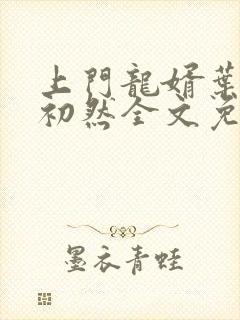 上門龍婿葉
初然全文免
墨衣青蛙